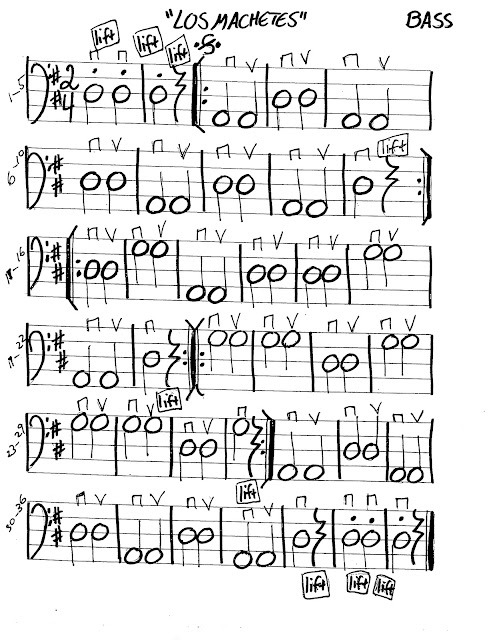 "LOS MACHETES" BASS
lift lift lift
1-5 2
4
6-10 lift
11-16
17-22
lift
23-29
lift
30-36
lift lift lift